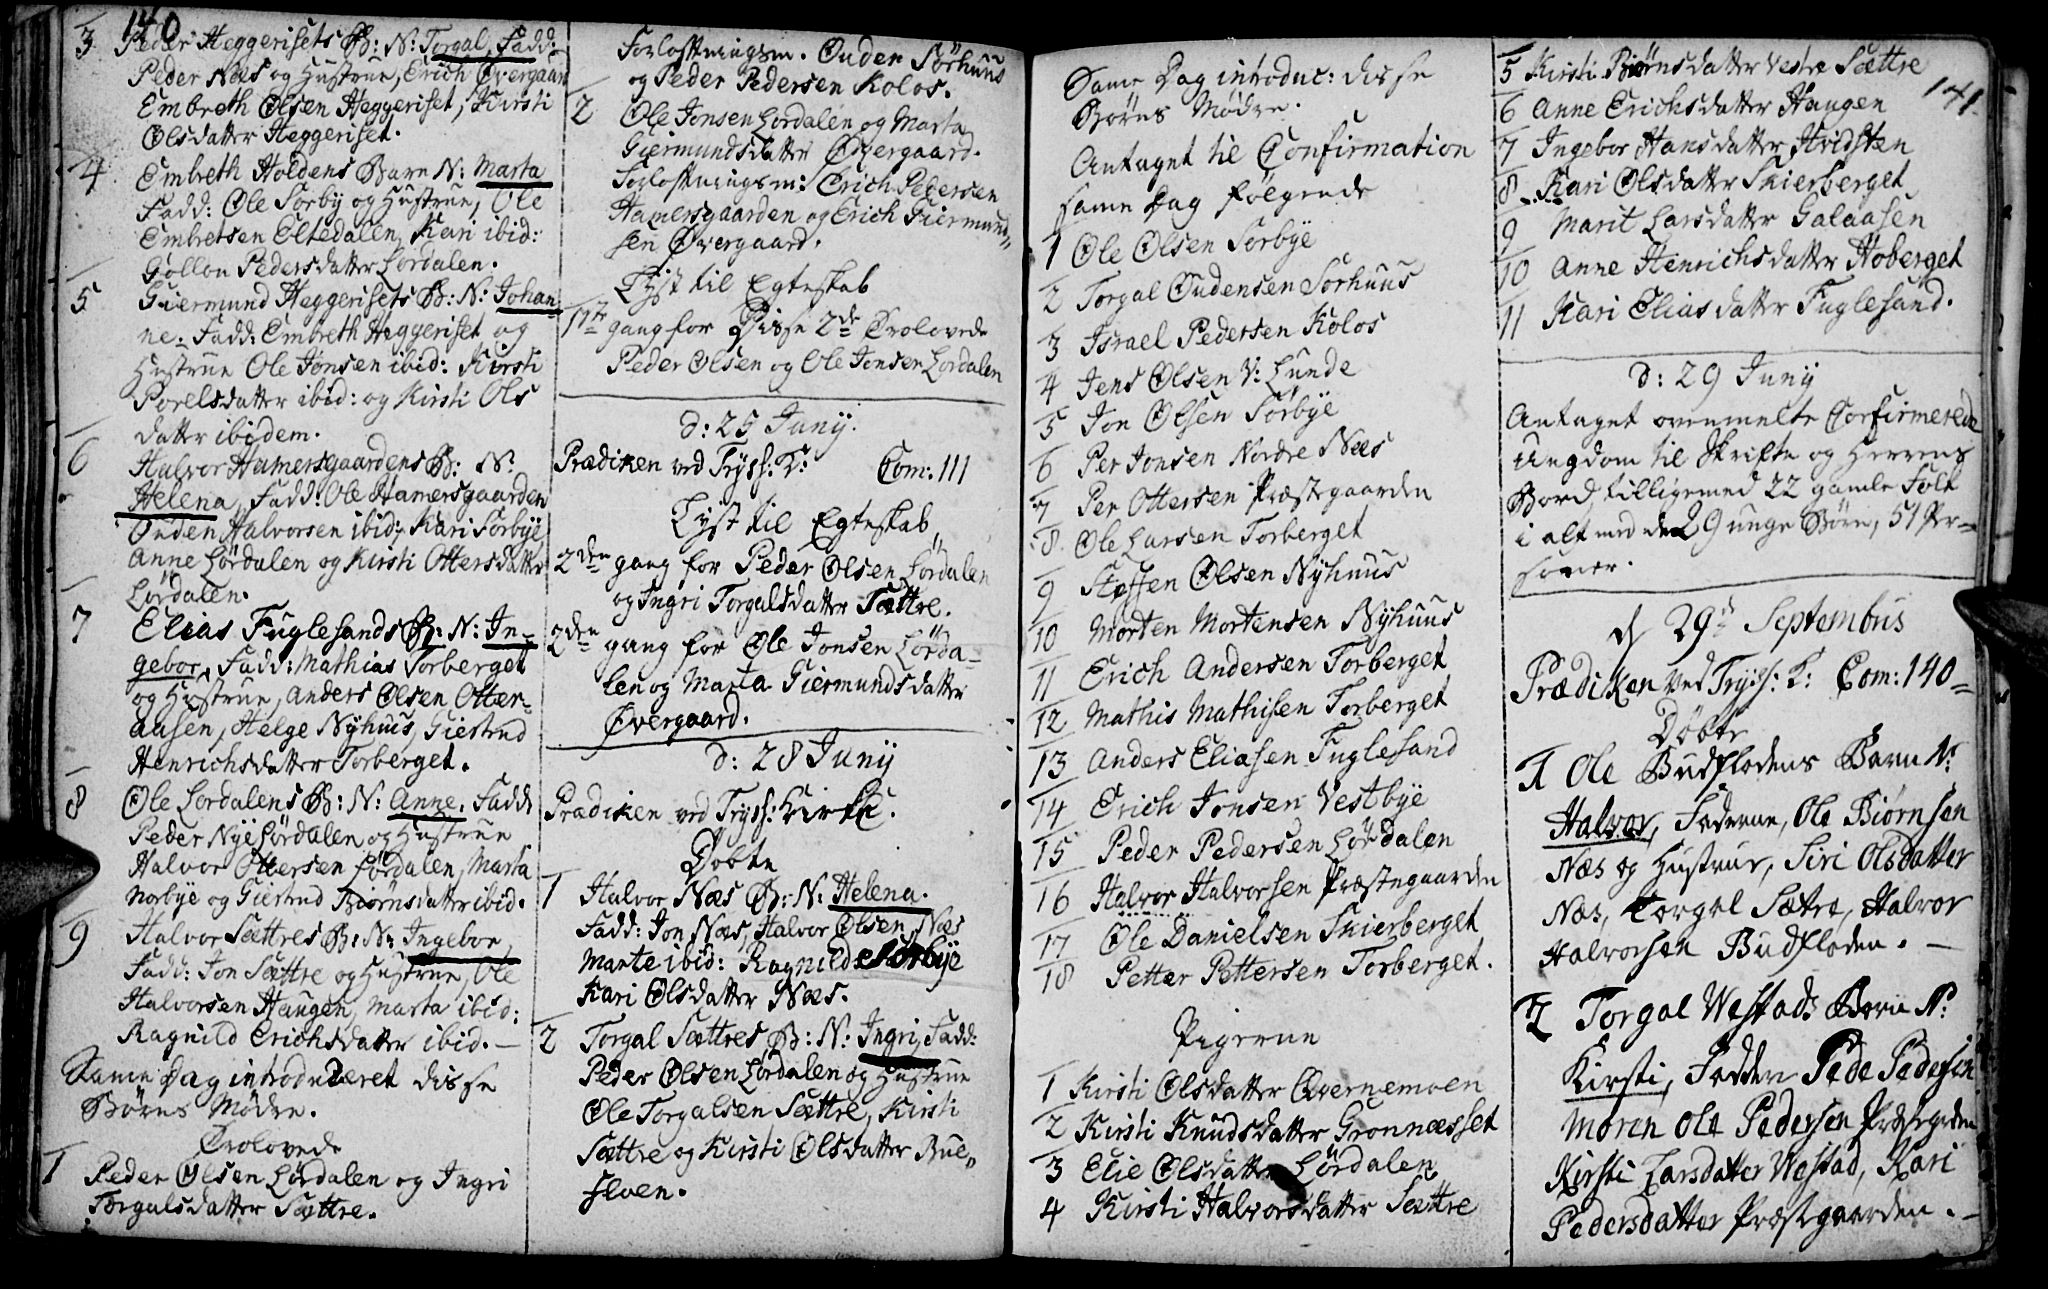 140
3 Peder Heggerisets B: N: Torgal, Fadd:
Peder Næs og Hustrue, Erich Øvergaar
Embreth Olsen Heggeriset, Kirsti
Olsdatter Heggeriset.
4 Embreth Holdens Barn N: Marta
Fadd: Ole Sorby og Hustrue, Ole
Embretsen Eltedalen, Kari ibid:
Gollou Pedersdatter Lordalen.
5 Giermund Heggerisets B: N: Johan=
ne. Fadd: Embreth Heggeriset og
Hustrue Ole Jonsen ibid: Kirsti
Porelsdatter ibid: og Kirsti Ols
datter ibidem.
6 Halvor Hamersgaardens B: N:
Helena, Fadd: Ole Hamersgaarden
Ouden Halvorsen ibid: Kari Sorbye
Anne Lørdalen og Kirsti Ottersdatter
Lørdalen.
7 Elias Fuglesands B: N: In=
gebor, Fadd: Mathias Torberget
og Hustrue, Anders Olsen Otter=
aasen, Helge Nyhuus, Giertrud
Henrichsdatter Torberget.
8 Ole Lordalens B: N: Anne, Fadd:
Peder Nye Lørdalen og Hustrue
Halvor Ottersen Lørdalen, Marta
Norbye og Giertrud Biørnsdatter ibid.
9 Halvor Sættres B: N: Ingebor,
Fadd: Jon Sættre og Hustrue, Ole
Halvorsen Haugen, Marta ibid:
Ragnild Erichsdatter ibid. —
Same Dag introduceret disse
Børns Mødre.
Trolovede
1 Peder Olsen Lørdalen og Ingri
Torgalsdatter Sættre.
Forloftningsm. Ouden Sörhuus
og Peder Pedersen Kolos.
2 Ole Jonsen Lordalen og Marta
Giermundsdatter Øvergaard.
Forloftningsm: Erich Pedersen
Hamersgaarden og Erich Giermund=
sen Øvergaard.
Lyst til Egteskab
1te gang for Disse 2de Trolovede
Peder Olsen og Ole Jonsen Lordalen
d: 25 Juny.
Prædiken ved Tryss: K: Com: 111
Lyst til Egteskab
2den gang for Peder Olsen Lørdalen
og Ingri Torgalsdatter Sættre.
2den gang for Ole Jonsen Lörda=
len og Marta Giermundsdatter
Øvergaard.
d: 28 Juny
Prædiken ved Tryss: Kirke.
Döbte
1 Halvor Næs B: N: Helena.
Fadd: Jon Næs, Halvor Olsen Næs
Marte ibid: Ragnild Sorbye
Kari Olsdatter Næs.
2 Torgal Sættres B: N: Ingri, Fadd:
Peder Olsen Lørdalen og Hustrue
Ole Torgalsen Sættre, Kirsti
Sættre og Kirsti Olsdatter Bue=
floen.
Same Dag introduc: disse
Børns Mødre.
Antaget til Confirmation
same Dag følgende
1 Ole Olsen Sorbye
2 Torgal Oudensen Sorhuus
3 Israel Pedersen Kolos
4 Jens Olsen V: Lunde
5 Jon Olsen Sørbye
6 Per Jonsen Nordre Næs
7 Per Ottersen Præstegaarden
8 Ole Larsen Torberget
9 Steffen Olsen Nyhuus
10 Morten Mortensen Nyhuus
11 Erich Andersen Torberget
12 Mathis Mathisen Torberget
13 Anders Eliasen Fuglesand
14 Erich Jonsen Vestbye
15 Peder Pedersen Lørdalen
16 Halvor Halvorsen Præstegaarden
17 Ole Danielsen Skierberget
18 Petter Pettersen Torberget.
Pigerne
1 Kirsti Olsdatter Qvernemoen
2 Kirsti Knudsdatter Gronnæsset
3 Elie Olsdatter Lördalen
4 Kirsti Halvorsdatter Sættre
141.
5 Kirsti Biørnsdatter Vestre Sættre
6 Anne Erichsdatter Haugen
7 Ingebor Hansdatter Hvidsten
8 Kari Olsdatter Skierberget
9 Marit Larsdatter Galaasen
10 Anne Henrichsdatter Hoberget
11 Kari Eliasdatter Fuglesand.
d: 29 Juny
Antaget ovenmelte Confirmerede
Ungdom til Skrifte og Herrens
Bord, tilligemed 22 gamle Folk
i alt med de 29 unge Børn, 51 Per=
soner.
d 29de Septembris
Prædiken ved Tryss: K: Com: 140=
Döbte
1 Ole Budflodens Barn N:
Halvor, Fadderne, Ole Biørnsen
Næs og Hustrue, Siri Olsdatter
Næs, Torgal Sætre, Halvor
Halvorsen Budfloden. —
2 Torgal Westads Barn N:
Kirsti, Fadder Pede Pedersen
Moren Ole Pedersen Præstgrden
Kirsti Larsdatter Westad, Kari
Pedersdatter Præstgaarden. —